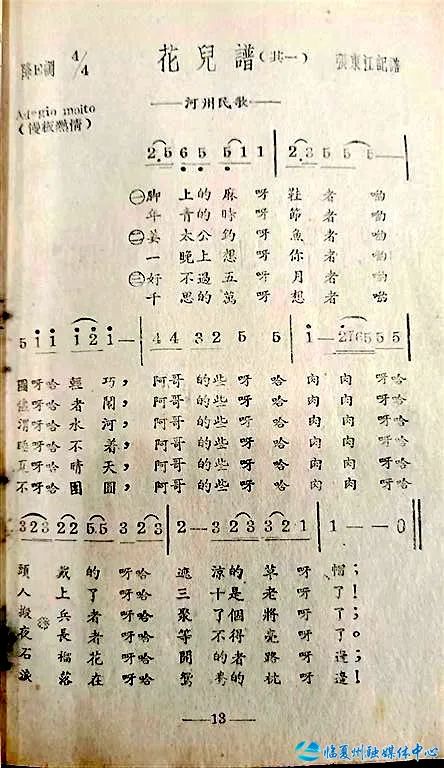 降E調 4/4 花兒譜(其一) 張東江記譜
Adagio molto
(慢板熱情)
——河州民歌——
2·5 6·5 5·1 1 | 2·3 5 5 5—
㊀脚上的麻呀鞋者呦
年青的時呀節者呦
㊁姜太公釣呀魚者呦
一晚上想呀你者呦
㊂好不過五呀月者呦
千思的萬呀想者呦
5 1 1 1 2 1— | 4 4 3 2 5 5 | 1—2765 5 5
呀哈輕巧,阿哥的些呀哈肉肉呀哈
呀哈者鬧,阿哥的些呀哈肉肉呀哈
渭呀哈水河,阿哥的些呀哈肉肉呀哈
睡呀哈不着,阿哥的些呀哈肉肉呀哈
夏呀哈晴天,阿哥的些呀哈肉肉呀哈
不呀哈團圓,阿哥的些呀哈肉肉呀哈
3 2 3 2 2 5 5 3 2 3 | 2—3 2 3 3 2 1 | 1——0
頭戴的呀哈遮涼的草呀帽;
人上了呀哈三十是老呀了!
搬兵者呀哈聚了個將呀了;
夜長者呀哈等不得亮呀了。
石榴花呀哈開的者路呀邊;
淚落在呀哈鴛鴦的枕呀邊!
——13——
临夏州融媒体中心